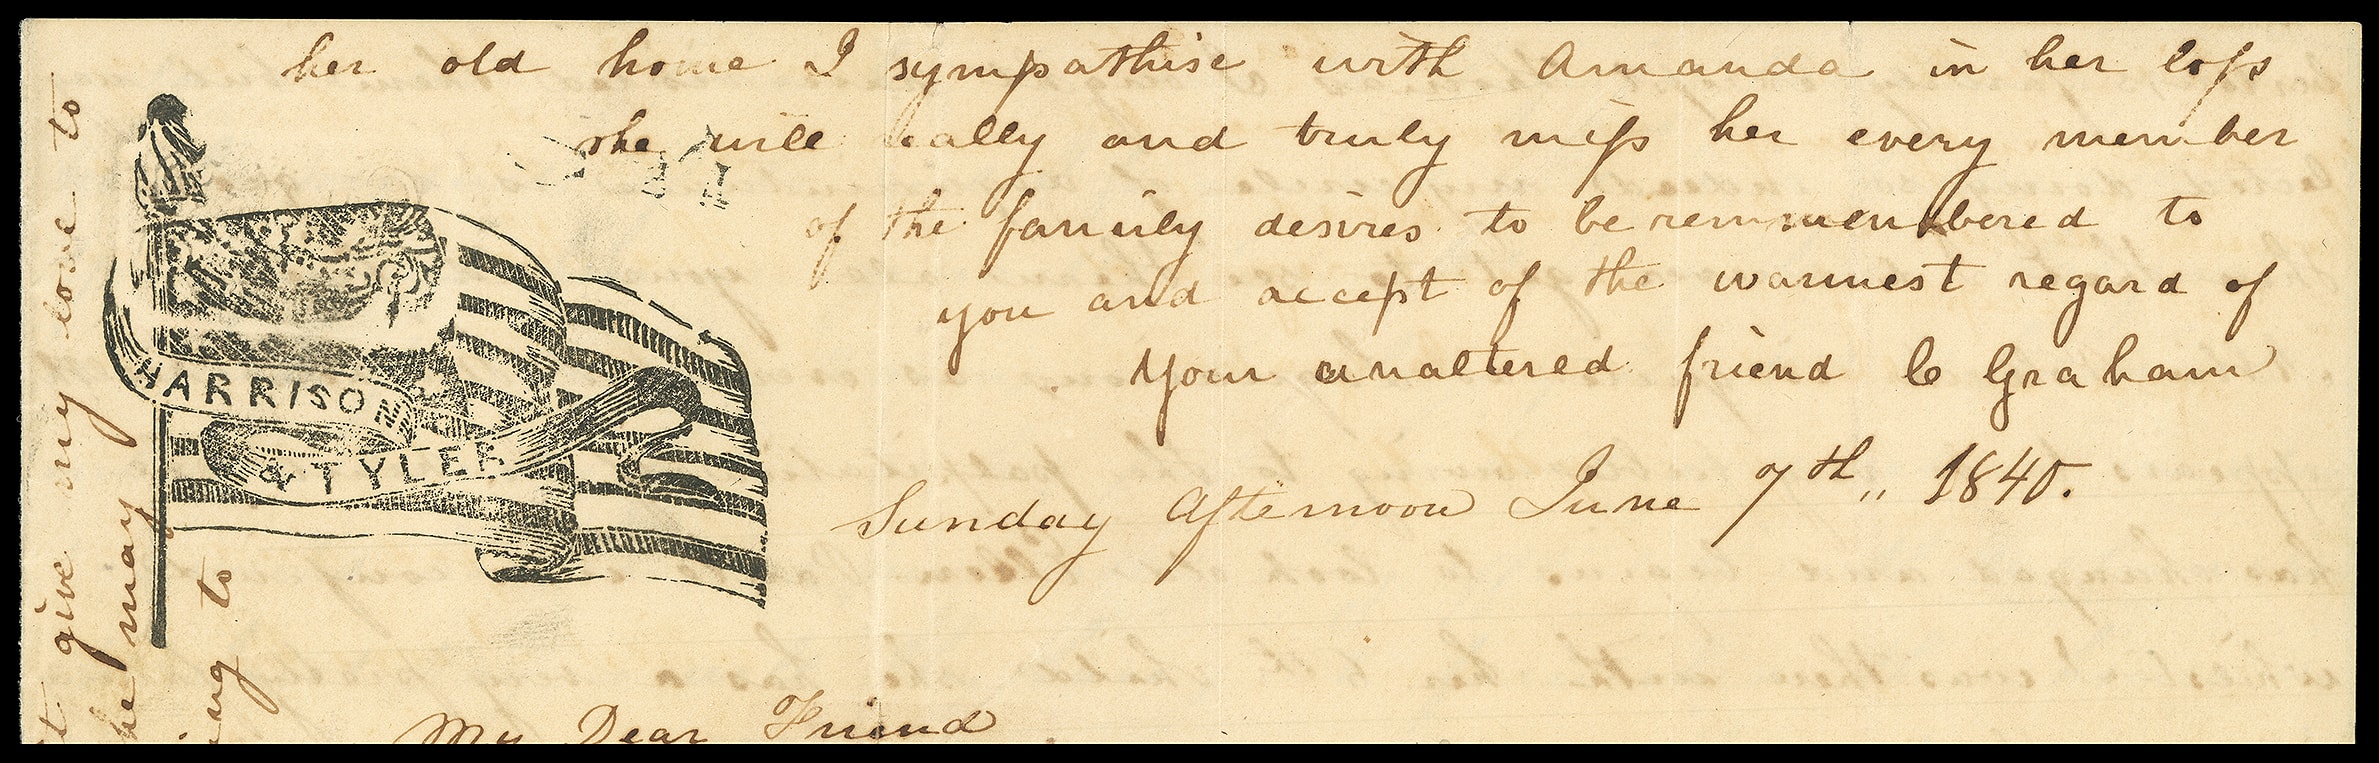 her old home I sympathise with Amanda in her loſs
she will really and truly miſs her every member
of the family desires to be remmembered to
you and accept of the warmest regard of
Your unaltered friend C Graham
HARRISON
& TYLER
Sunday Afternoon June 7th,, 1840.
My Dear Friend
give my love to
he may
to